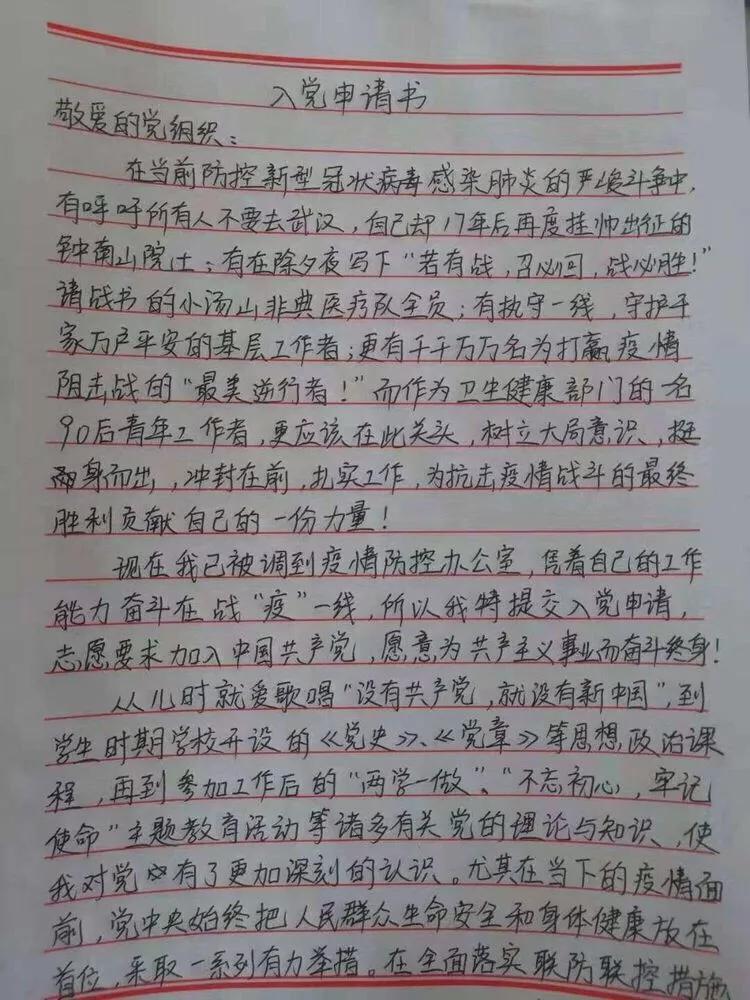 入党申请书
敬爱的党组织：
在当前防控新型冠状病毒感染肺炎的严峻斗争中，
有呼吁所有人不要去武汉，自己却17年后再度挂帅出征的
钟南山院士；有在除夕夜写下“若有战，召必回，战必胜！”
请战书的小汤山非典医疗队全员；有执守一线，守护千
家万户平安的基层工作者；更有千千万万名为打赢疫情
阻击战的“最美逆行者！”而作为卫生健康部门的一名
90后青年工作者，更应该在此关头，树立大局意识，挺
身而出，冲封在前，扎实工作，为抗击疫情战斗的最终
胜利贡献自己的一份力量！
现在我已被调到疫情防控办公室，凭着自己的工作
能力奋斗在战“疫”一线，所以我特提交入党申请，
志愿要求加入中国共产党，愿意为共产主义事业而奋斗终身！
从儿时就爱歌唱“没有共产党，就没有新中国”，到
学生时期学校开设的《党史》、《党章》等思想政治课
程，再到参加工作后的“两学一做”、“不忘初心，牢记
使命”主题教育活动等诸多有关党的理论与知识，使
我对党有了更加深刻的认识。尤其在当下的疫情面
前，党中央始终把人民群众生命安全和身体健康放在
首位，采取一系列有力举措。在全面落实联防联控措施